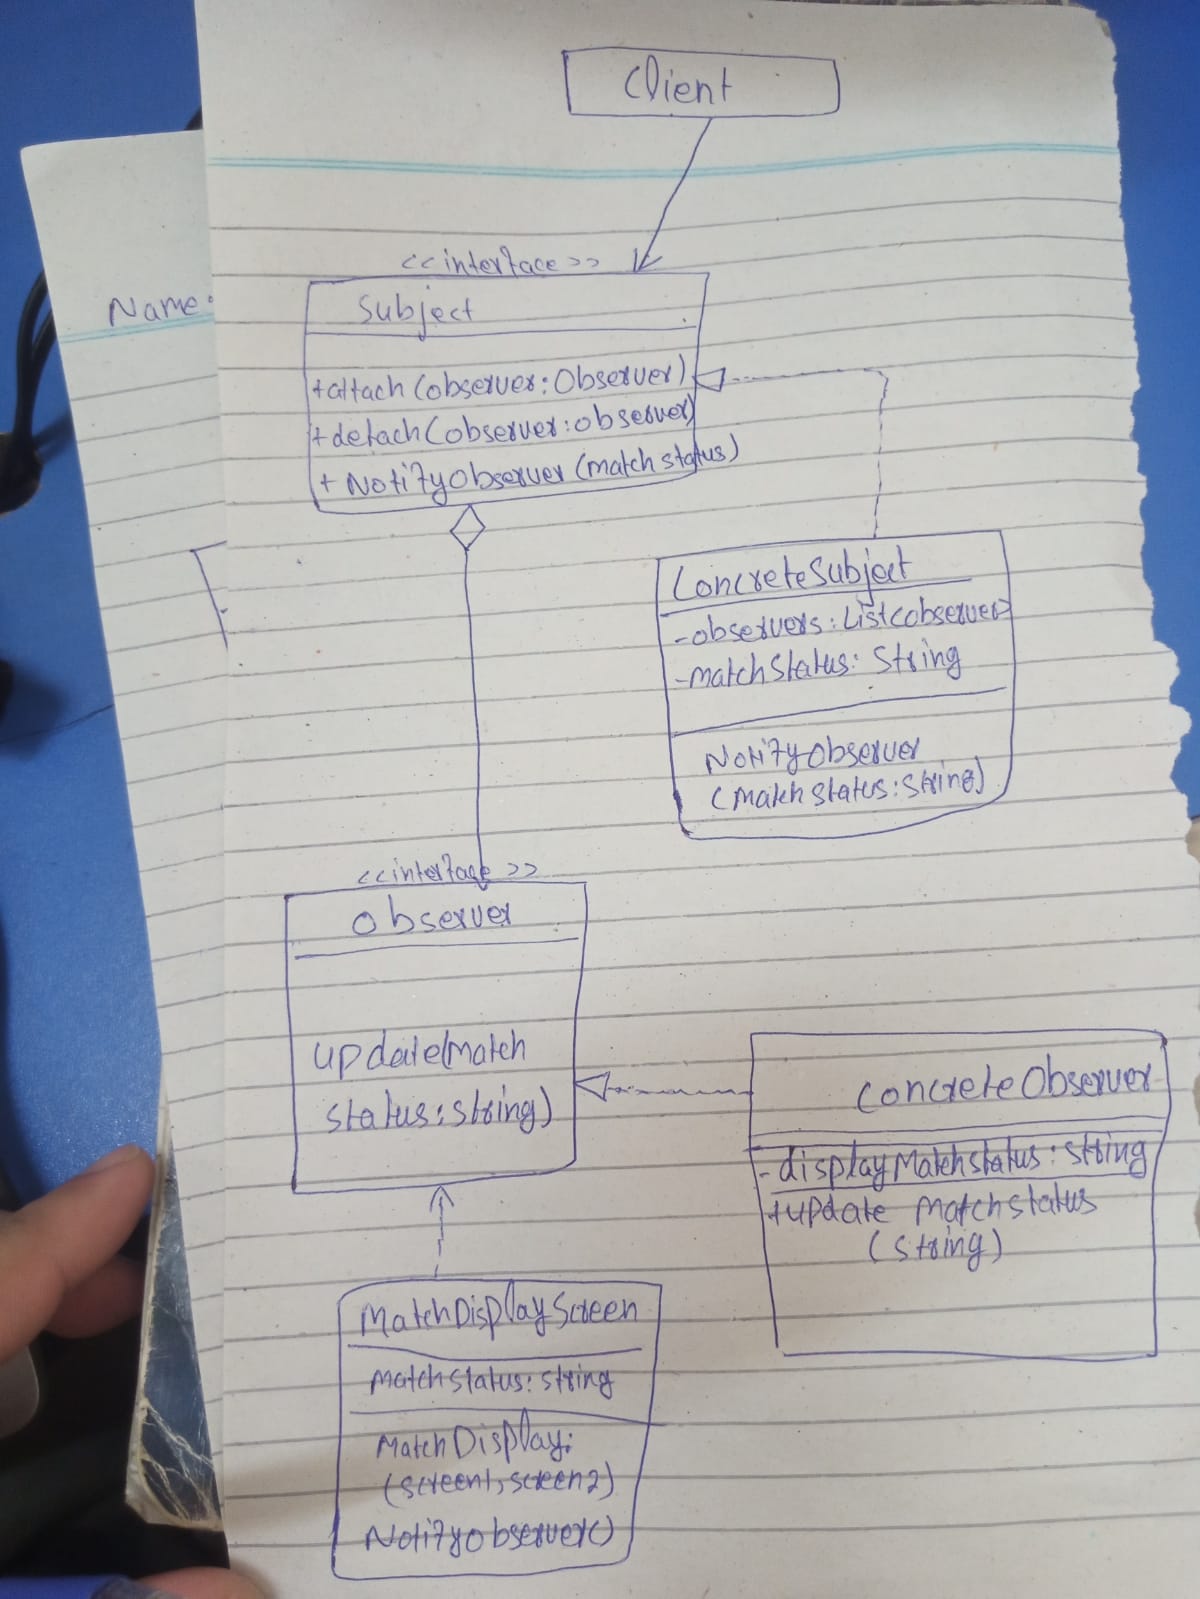 Client
<<interface>>
Subject
+attach(observer:Observer)
+detach(observer:observer)
+NotifyObserver(match status)
Name:
ConcreteSubject
-observers:List<observer>
-matchStatus: String
NotifyObserver
(matchstatus:string)
<<interface>>
observer
update(match
status:string)
ConcreteObserver
-displayMatchstatus:string
+update matchstatus
(string)
MatchDisplayScreen
matchstatus:string
MatchDisplay:
(screen1,screen2)
Notifyobserver()